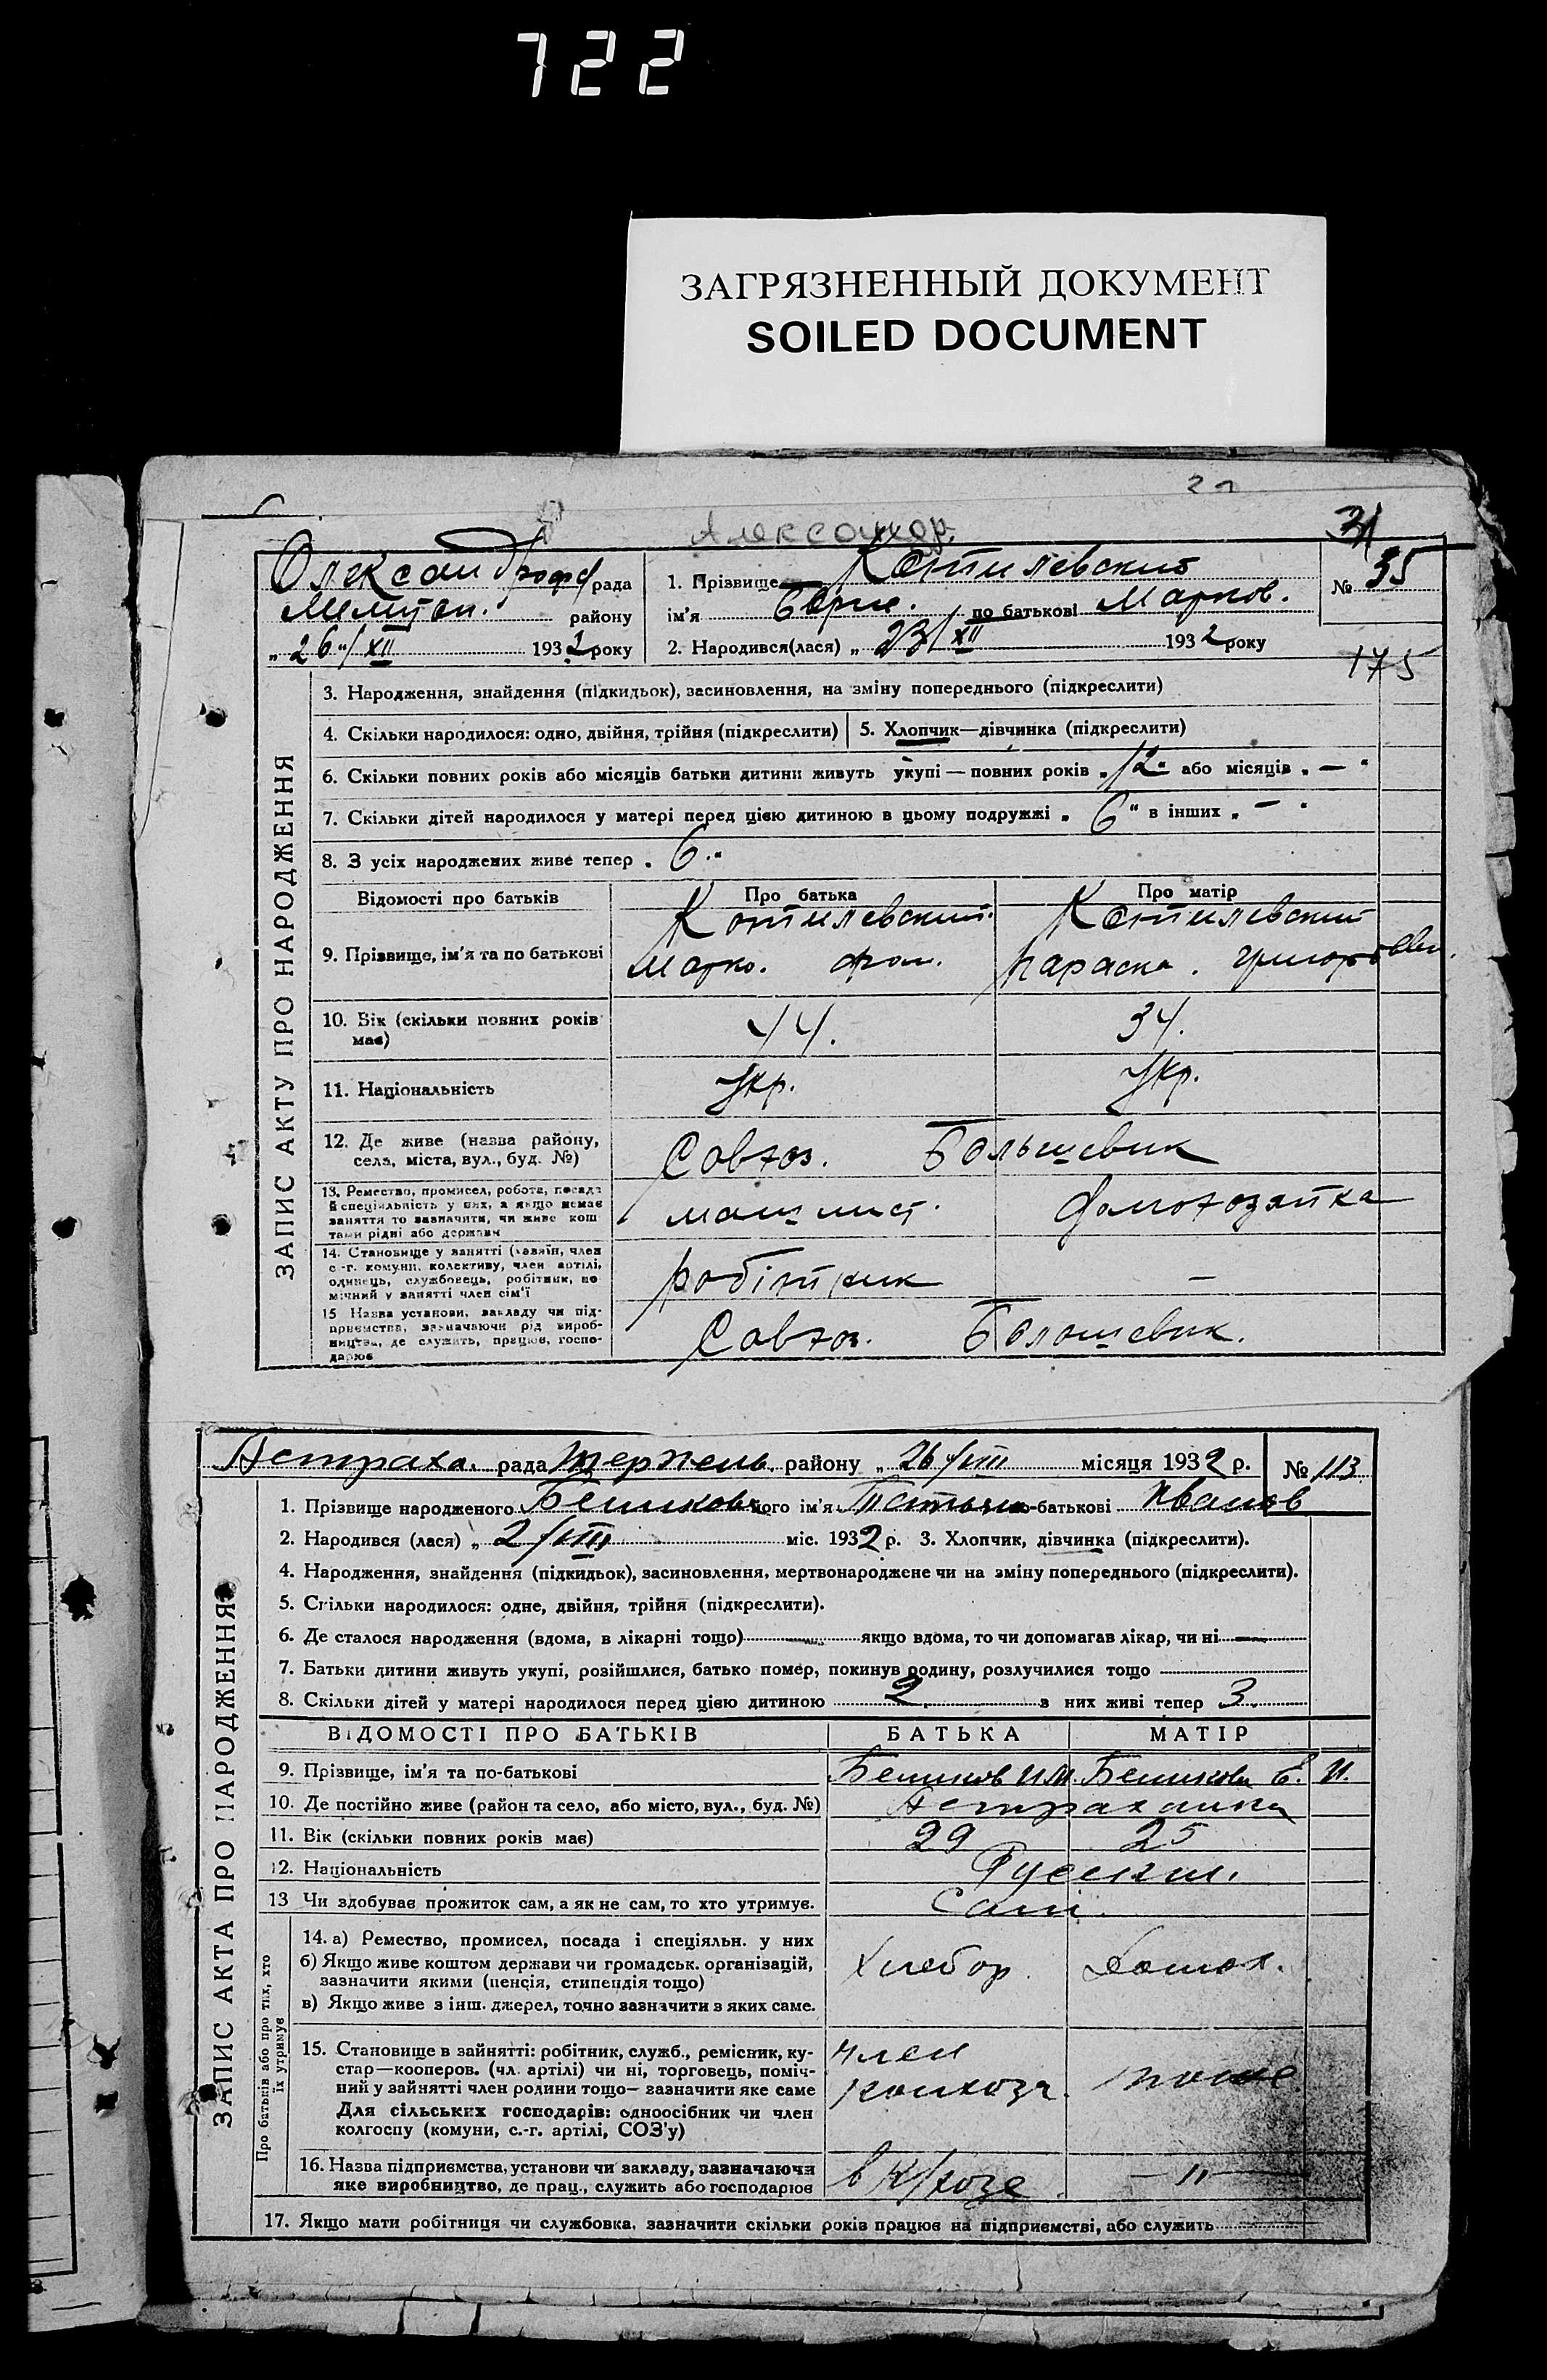 722
ЗАГРЯЗНЕННЫЙ ДОКУМЕНТ
SOILED DOCUMENT
Александр.
31
рада
Меліт
району
„26"/XII 1932 року
1. Прізвище Котилевский
ім'я Борис. по батькові Марков.
№ 35
2. Народився(лася) „23/XII 1932 року
175
ЗАПИС АКТУ ПРО НАРОДЖЕННЯ
3. Народження, знайдення (підкидьок), засиновлення, на зміну попереднього (підкреслити)
4. Скільки народилося: одно, двійня, трійня (підкреслити)
5. Хлопчик—дівчинка (підкреслити)
6. Скільки повних років або місяців батьки дитини живуть укупі — повних років „12" або місяців „—"
7. Скільки дітей народилося у матері перед цією дитиною в цьому подружжі „6" в інших „—"
8. З усіх народжених живе тепер „6"
Відомості про батьків
Про батька
Про матір
9. Прізвище, ім'я та по батькові
Котилевский
Марко.
Котилевский
Параска.
10. Вік (скільки повних років має)
44.
34.
11. Національність
Укр.
Укр.
12. Де живе (назва району, села, міста, вул., буд. №)
Совхоз. Большевик
13. Ремество, промисел, робота, посада й спеціяльність у них, а якщо немає заняття то зазначити, чи живе коштами рідні або держави
машинист.
домохозяйка
14. Становище у занятті (хазяїн, член с.-г. комуни, колективу, член артілі, одинець, службовець, робітник, помічний у занятті член сім'ї
робітник
—
15 Назва установи, закладу чи підприємства, зазначаючи рід виробництва, де служить, працює, господарює
Совхоз. Болошевик.
Астраха. рада Терпень району „26/VIII місяця 1932 р. № 113
ЗАПИС АКТА ПРО НАРОДЖЕННЯ
1. Прізвище народженого його ім'я Татьяна по-батькові Иванов
2. Народився (лася) „2/VIII міс. 1932 р. 3. Хлопчик, дівчинка (підкреслити).
4. Народження, знайдення (підкидьок), засиновлення, мертвонароджене чи на зміну попереднього (підкреслити).
5. Скільки народилося: одне, двійня, трійня (підкреслити).
6. Де сталося народження (вдома, в лікарні тощо) якщо вдома, то чи допомагав лікар, чи ні
7. Батьки дитини живуть укупі, розійшлися, батько помер, покинув родину, розлучилися тощо
8. Скільки дітей у матері народилося перед цією дитиною 2 з них живі тепер 3.
ВІДОМОСТІ ПРО БАТЬКІВ
БАТЬКА
МАТІР
9. Прізвище, ім'я та по-батькові
И.М.
Е. И.
10. Де постійно живе (район та село, або місто, вул., буд. №)
Астраханка
11. Вік (скільки повних років має)
29
25
12. Національність
Русским.
13 Чи здобуває прожиток сам, а як не сам, то хто утримує.
Самі.
Про батьків або про тих, хто їх утримує
14. а) Ремество, промисел, посада і спеціяльн. у них
б) Якщо живе коштом держави чи громадськ. організацій, зазначити якими (пенсія, стипендія тощо)
в) Якщо живе з інш. джерел, точно зазначити з яких саме.
Хлебор.
Домох.
15. Становище в зайнятті: робітник, служб., ремісник, кустар—кооперов. (чл. артілі) чи ні, торговець, помічний у зайнятті член родини тощо— зазначити яке саме
Для сільських господарів: одноосібник чи член колгоспу (комуни, с.-г. артілі, СОЗ'у)
член
колхоза.
тоже
16. Назва підприємства, установи чи закладу, зазначаючи яке виробництво, де прац., служить або господарює
в к/хозе.
—"—
17. Якщо мати робітниця чи службовка, зазначити скільки років працює на підприємстві, або служить